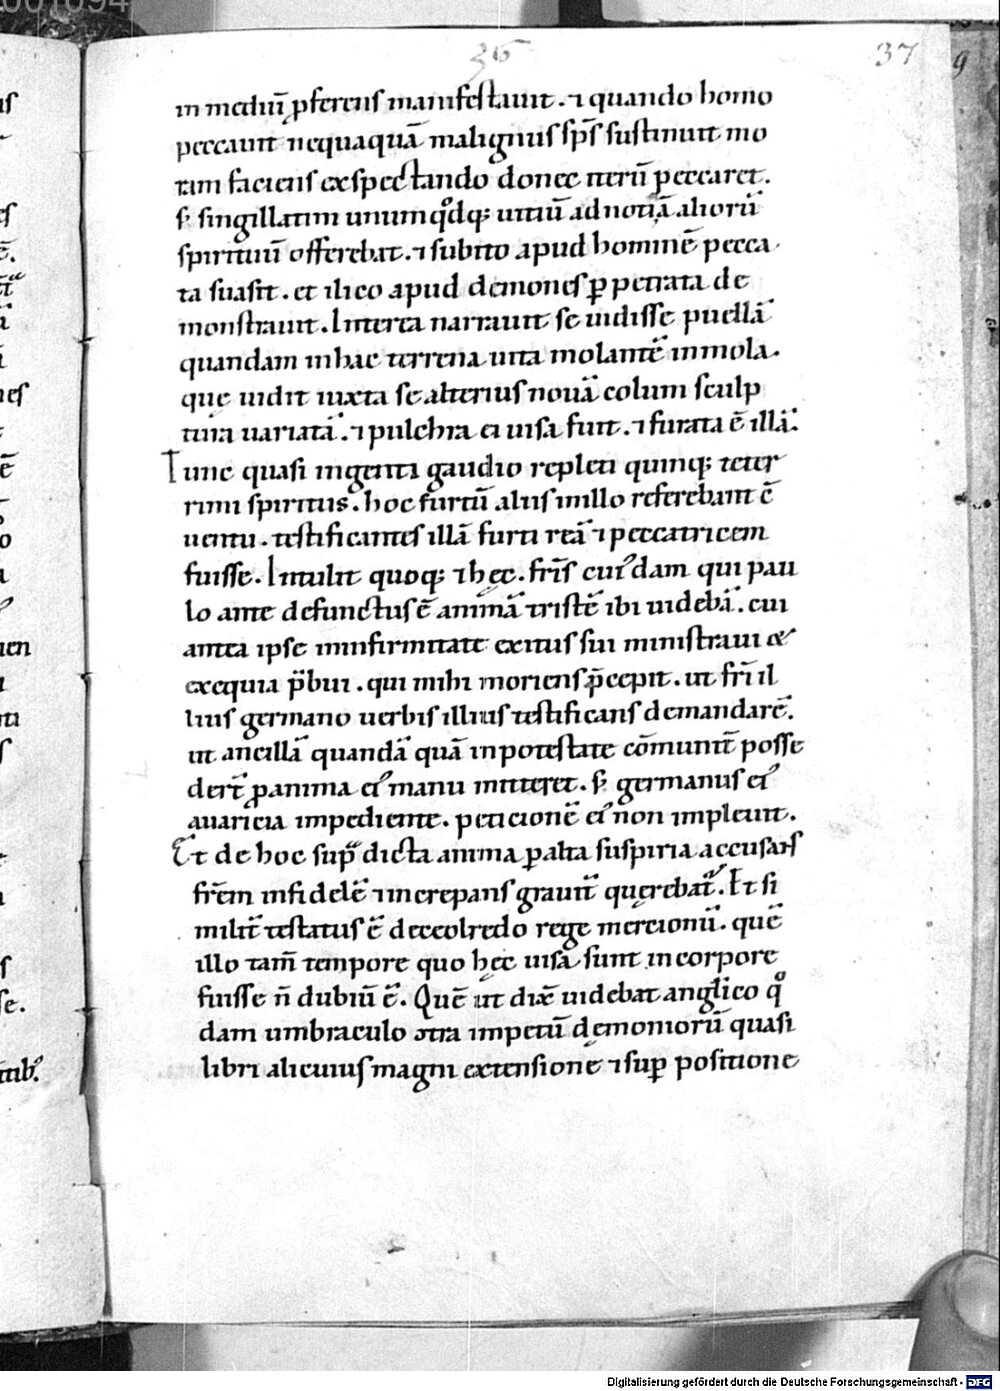 36
37
in mediū ꝓferens manifestauit. ⁊ quando homo
peccauit nequaquā malignus sp̄s sustinuit mo
ram faciens exspectando donec iterū peccaret.
s; singillatim unumqͦdq; uitiū ad notitiā aliorū
spirituū offerebat. ⁊ subito apud hominē pecca
ta suasit. et ilico apud demones ꝑpetrata de
monstrauit. Interea narrauit se uidisse puellā
quandam in hac terrena uita molantē in mola.
quę uidit iuxta se alterius nouā colum sculp
tura uariatā. ⁊ pulchra ei uisa fuit. ⁊ furata ē illā.
Tunc quasi ingenti gaudio repleti quinq; teter
rimi spiritus. hoc furtū aliis in illo referebant cē
uentu. testificantes illā furti reā ⁊ peccatricem
fuisse. Intulit quoq; ⁊ hęc. fr̄is cuiꝰdam qui pau
lo ante defunctus ē animā tristē ibi uidebā. cui
antea ipse in infirmitate exitus sui ministraui &
exequia p̄bui. qui mihi moriens p̄cepit. ut fr̄i il
lius germano uerbis illius testificans demandarē.
ut ancillā quandā quā in potestate cōmunit̄ posse
der̄t ꝓ anima eiꝰ manu mitteret. s; germanus eiꝰ
auaricia impediente. peticionē eiꝰ non impleuit.
Et de hoc sup̄dicta anima ꝑ alta suspiria accusans
fr̄em infidelē ⁊ increpans grauit̄ querebat̄. Et si
milit̄ testatus ē de ceolredo rege mercionū. quē
illo tam̄ tempore quo hęc uisa sunt in corpore
fuisse n̄ dubiū ē. Quē ut dix̄ uidebat anglico qͦ
dam umbraculo ↄtra impetū demoniorū quasi
libri alicuius magni extensione ⁊ suꝑ positione
Digitalisierung gefördert durch die Deutsche Forschungsgemeinschaft - DFG